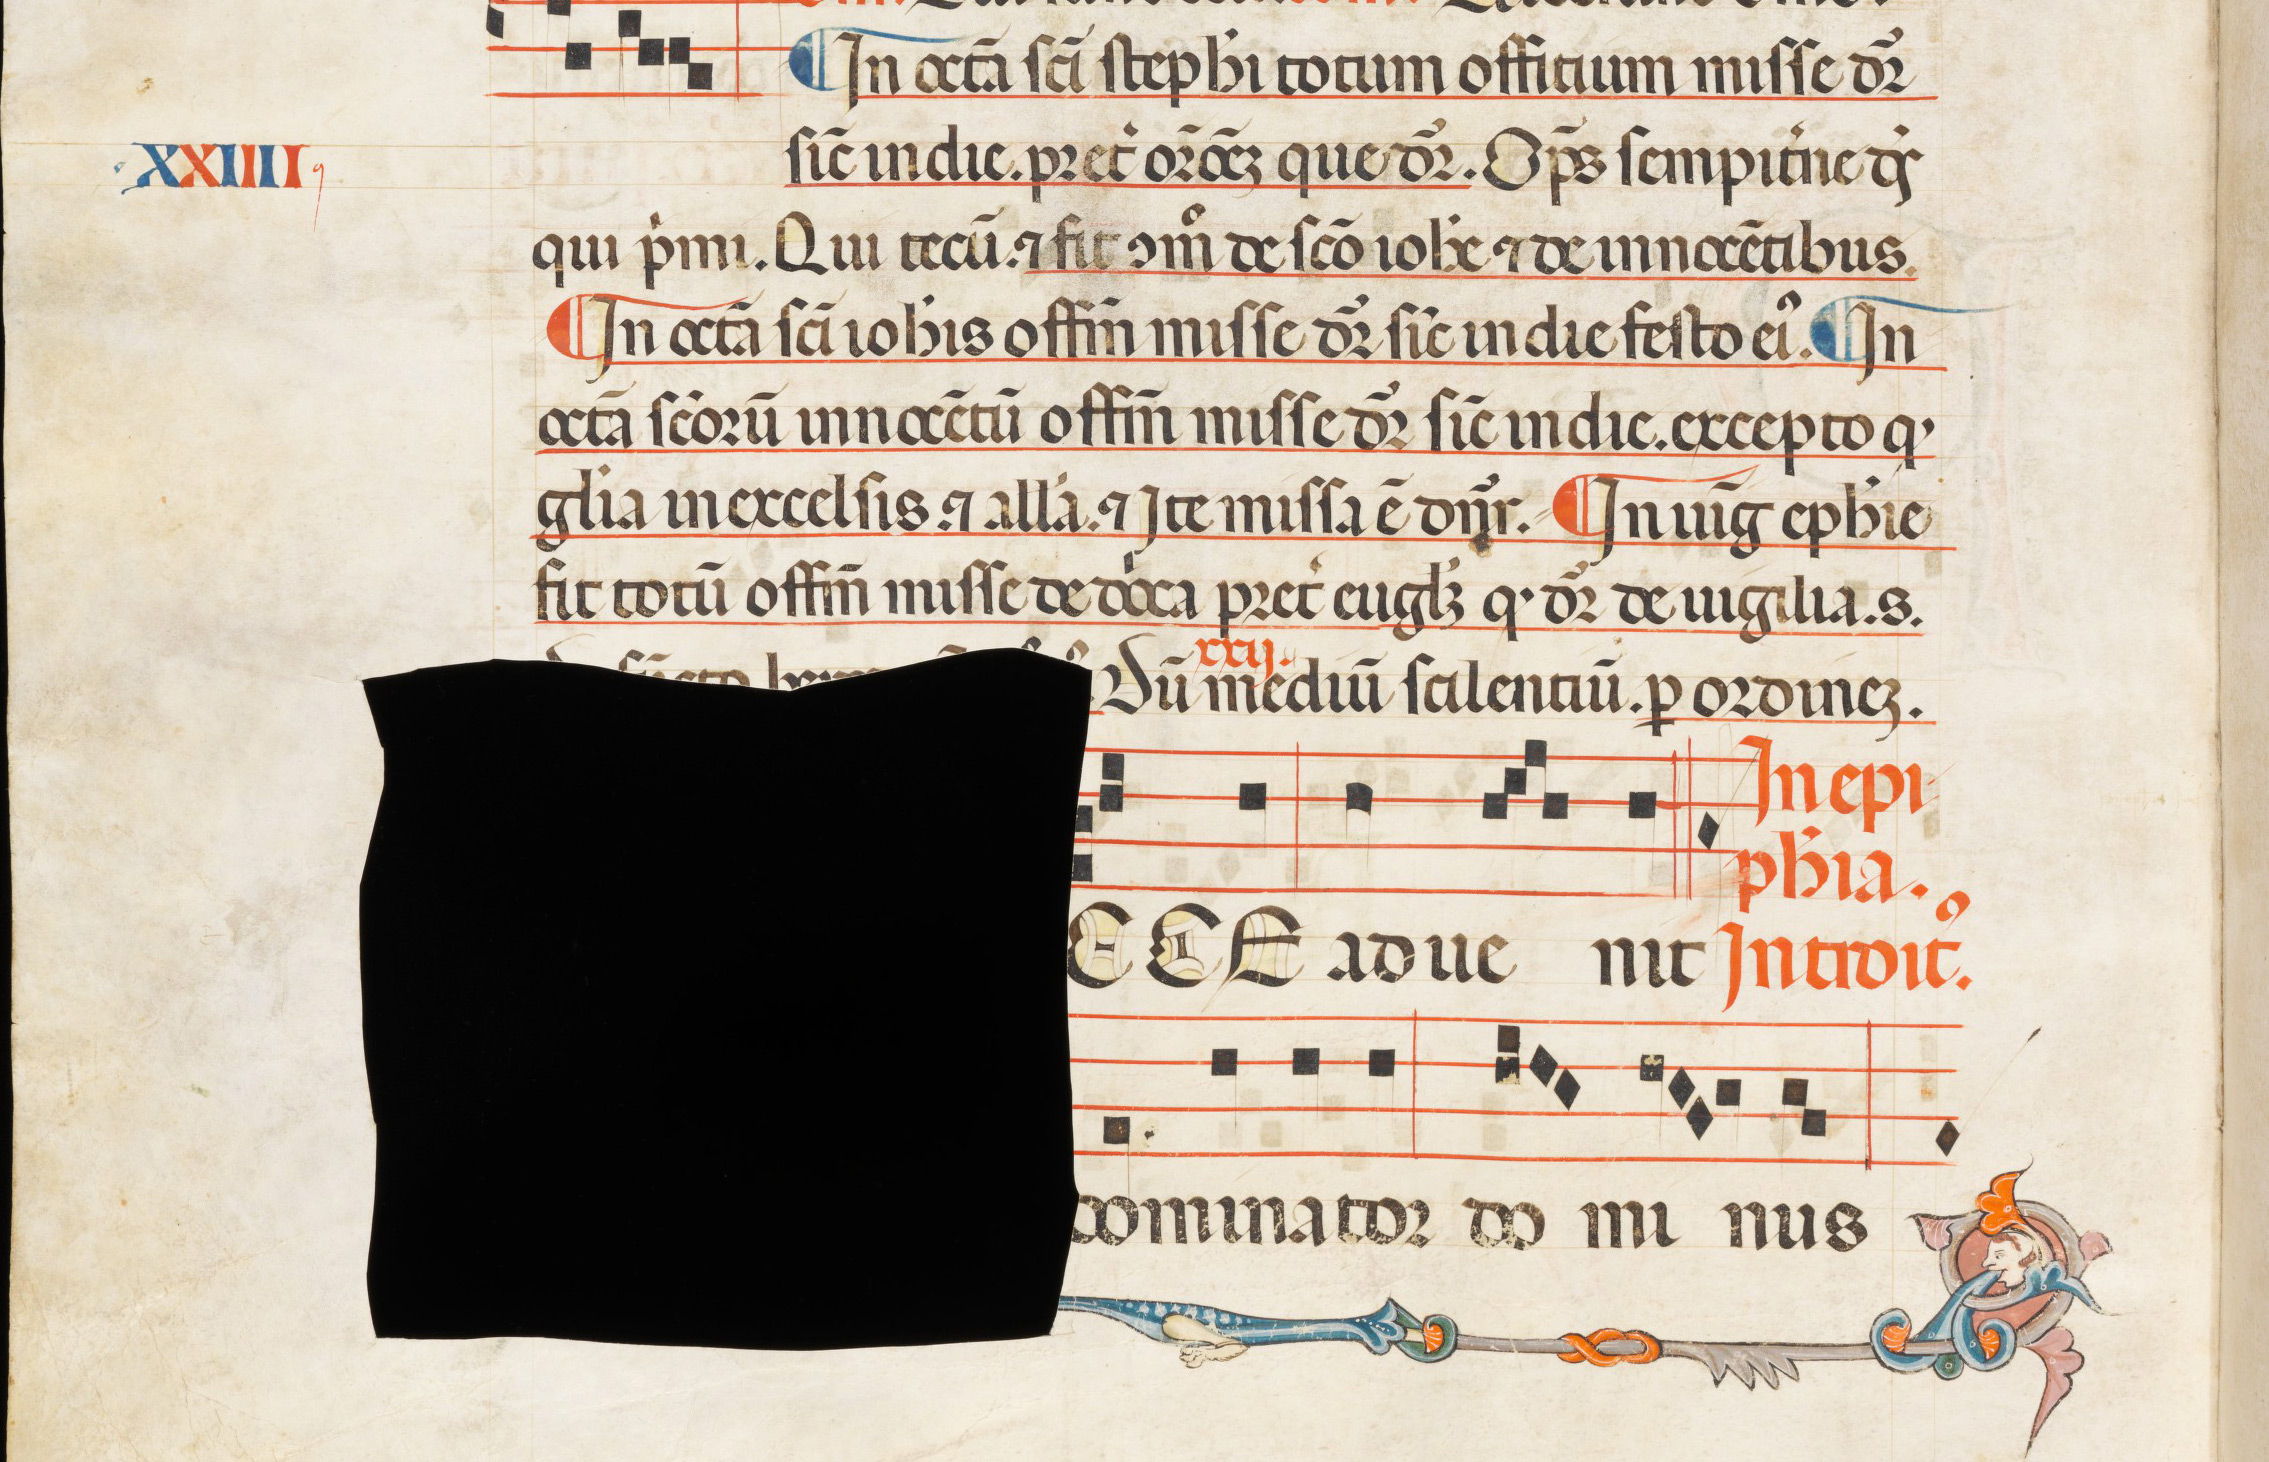 In octā sc̄i stephi totum offitium misse dr̄
XXIIII
sic̄ in die. pret̾ orōꝫ que dr̄. Op̄s sempit̾ne ds̄
qui p̾mi. Qui tecū. ⁊ fit ꝯm̄ de sc̄o ioh̄e ⁊ de innocētibus.
In octā sc̄i ioh̄is offm̄ misse dr̄ sic̄ in die festo eiꝰ. In
octā sc̄orū innocētū offm̄ misse dr̄ sic̄ in die. excepto ꝙ
gl̄ia in excelsis. ⁊ all̄a. ⁊ Ite missa ē dn̄r. In uiḡ eph̄ie
fit totū offm̄ misse de dn̄ica pret̾ euḡlꝫ ꝙ dr̄ de uigilia. s.
xxij.
Dū mediū scilentiū. ꝑ ordineꝫ.
In epi
ph̄ia.
CCE adue nit Introit̾ꝰ.
dominator do mi nus